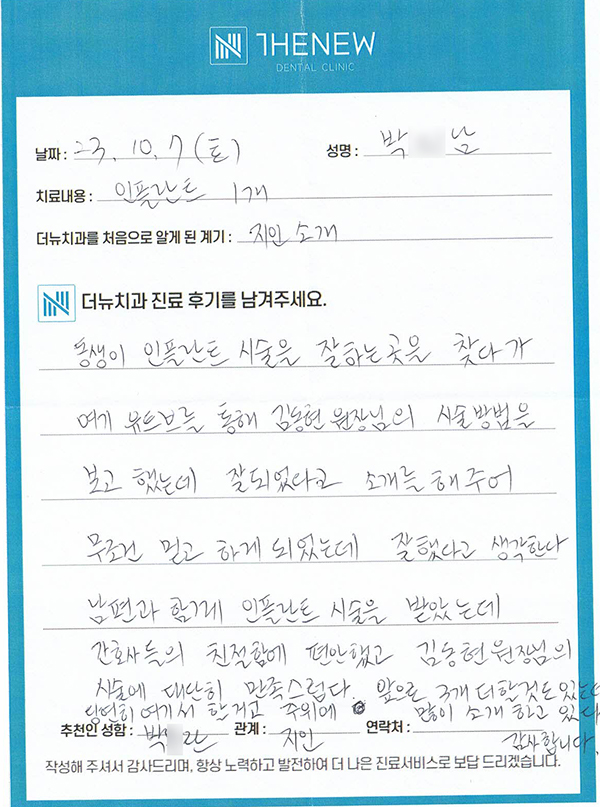 THENEW
DENTAL CLINIC
날짜 : 23. 10. 7 (토) 성명 : 박 남
치료내용 : 인플란트 1개
더뉴치과를 처음으로 알게 된 계기 : 지인 소개
더뉴치과 진료 후기를 남겨주세요.
동생이 인플란트 시술을 잘하는곳을 찾다가
여기 유트브를 통해 김동현 원장님의 시술방법을
보고 했는데 잘되었다고 소개를 해주어
무조건 믿고 하게 되었는데 잘했다고 생각한다
남편과 함께 인플란트 시술을 받았는데
간호사들의 친절함에 편안했고 김동현 원장님의
시술에 대단히 만족스럽다. 앞으로 3개 더할것도 있는데
당연히 여기서 할거고 주위에 많이 소개하고 있다
감사합니다.
추천인 성함 : 박 란 관계 : 지인 연락처 :
작성해 주셔서 감사드리며, 항상 노력하고 발전하여 더 나은 진료서비스로 보답 드리겠습니다.